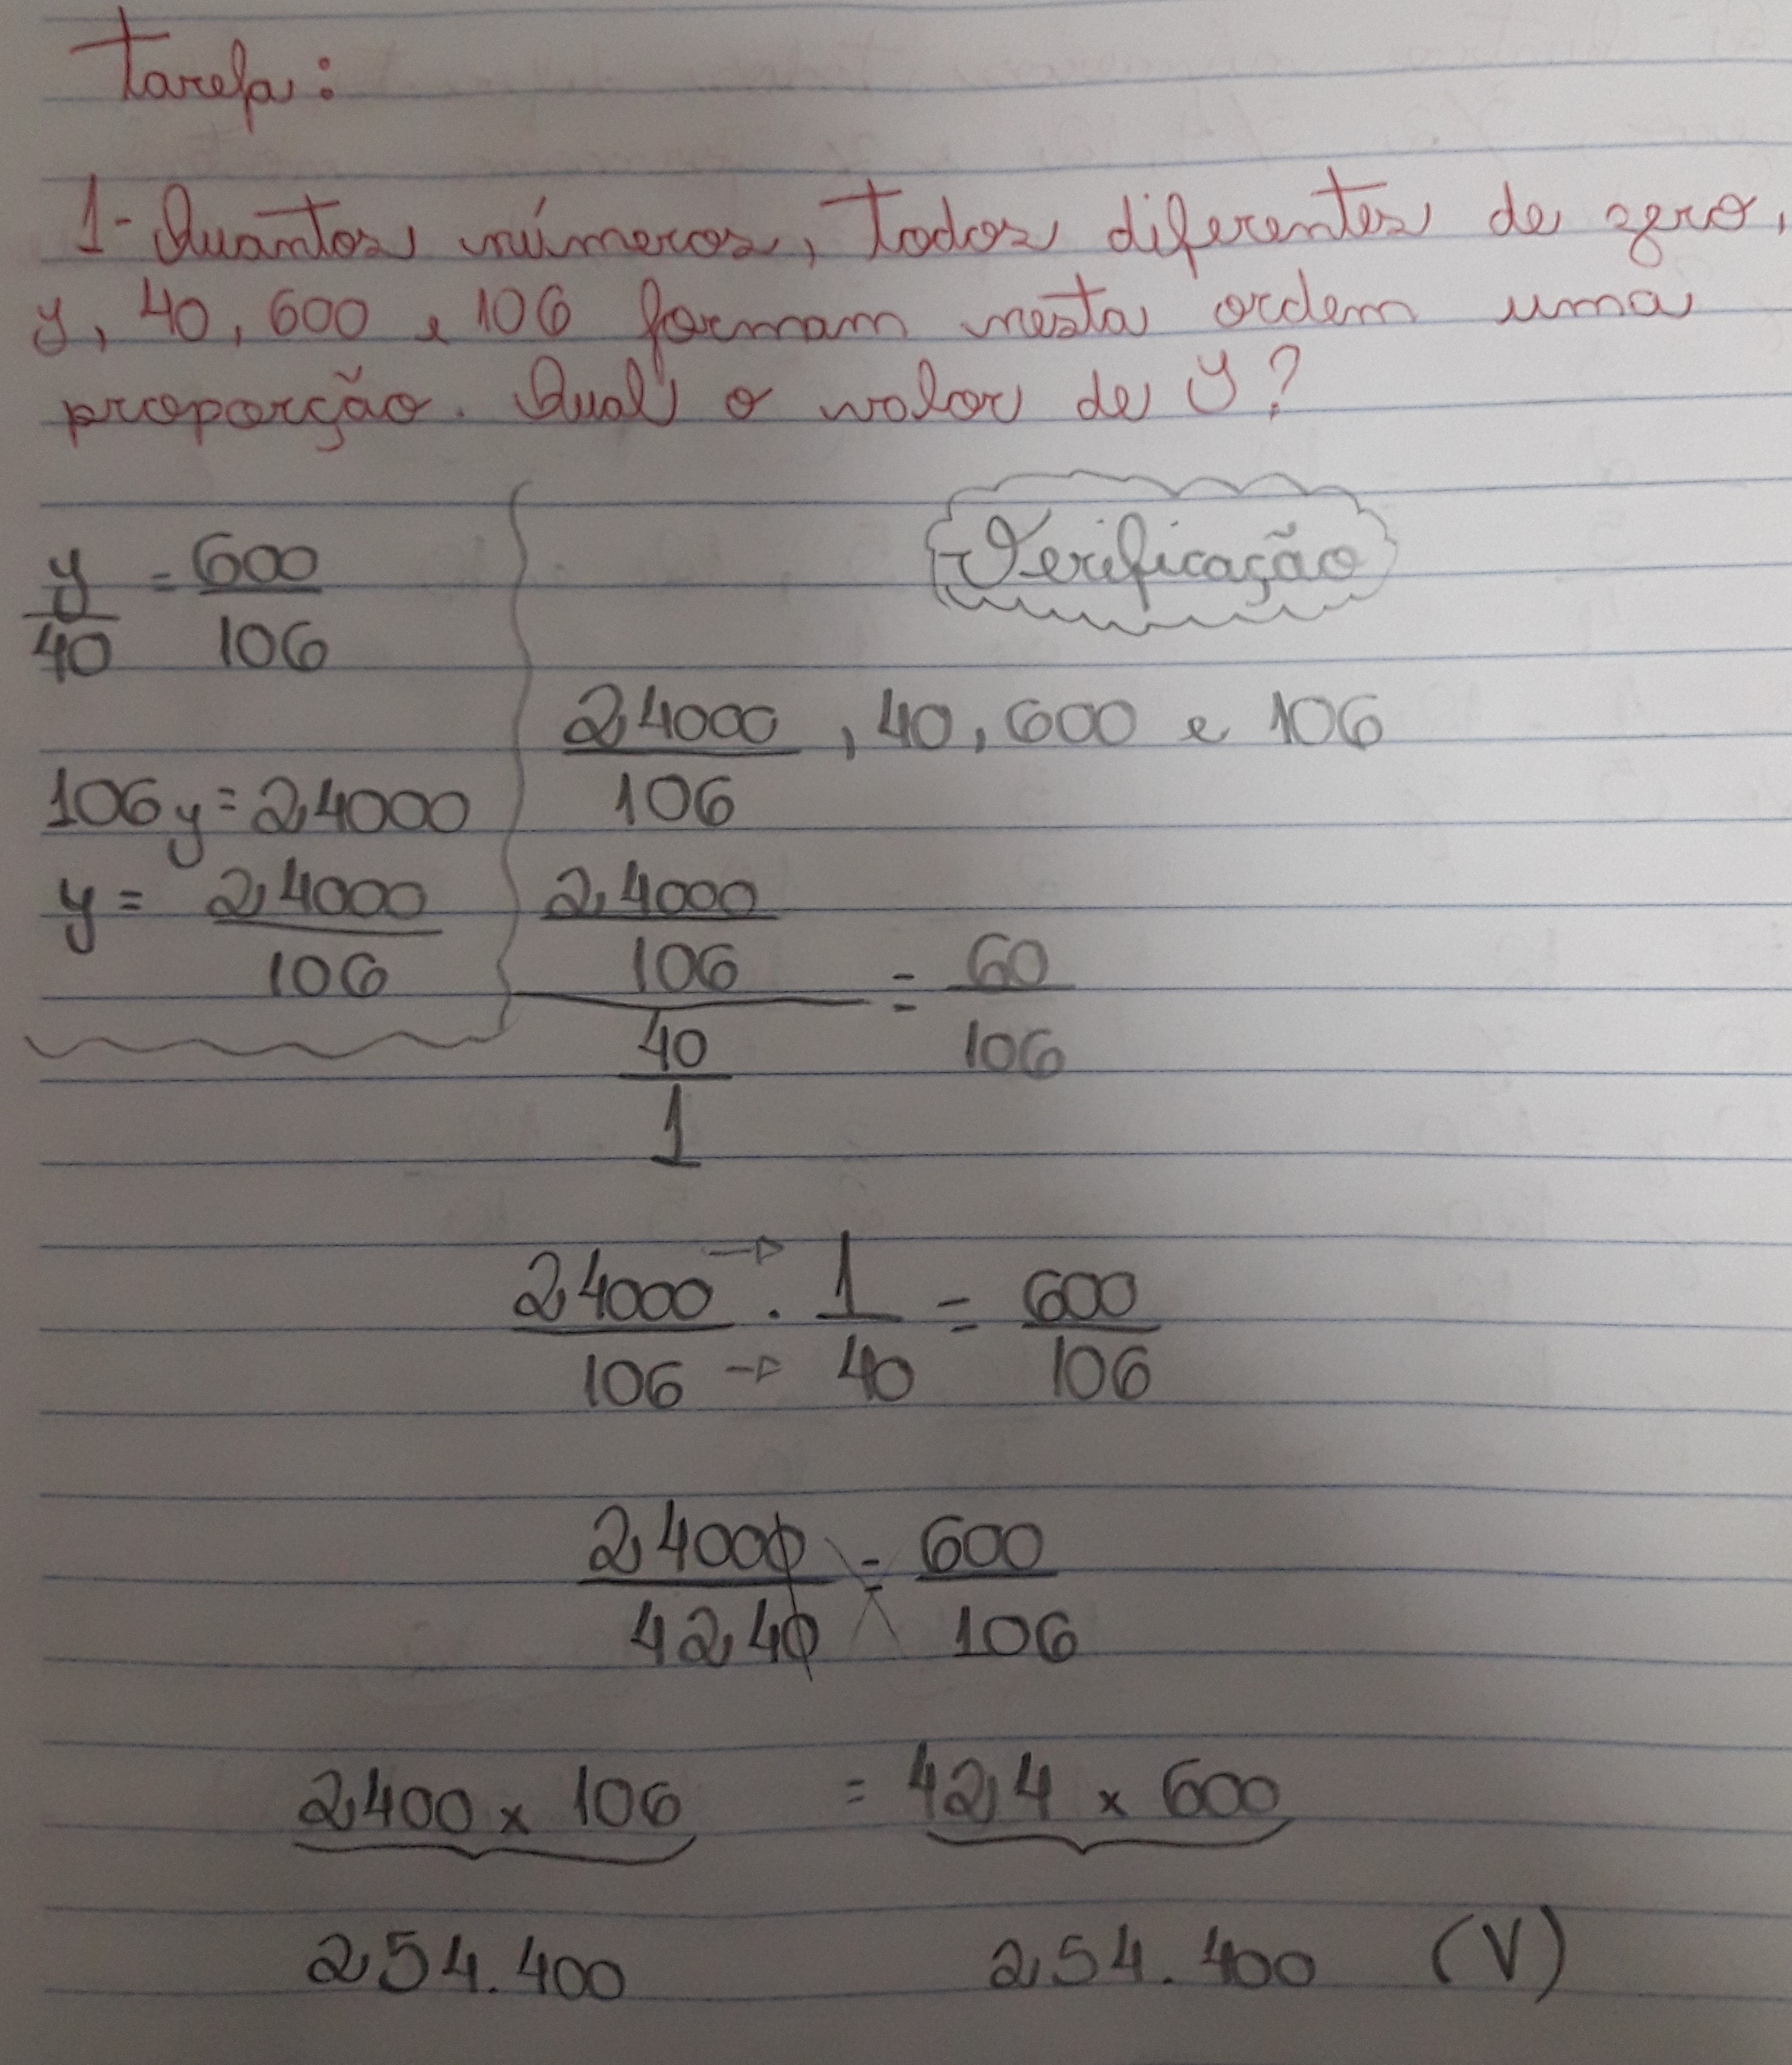 Tarefa:
1- Quantos números, todos diferentes de zero,
y, 40, 600 e 106 formam nesta ordem uma
proporção. Qual o valor de y?
Verificação
y/40 = 600/106
24000/106, 40, 600 e 106
106y = 24000
y = 24000/106
24000/106 / 40/1 = 60/106
24000/106 → . → 1/40 = 600/106
24000/4240 = 600/106
2400 x 106 = 424 x 600
254.400 254.400 (V)